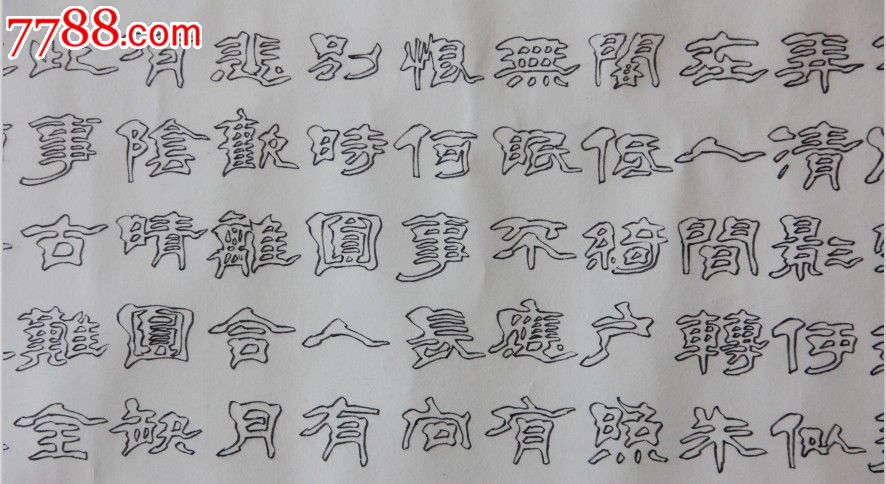 7788.com
弄清影何似
在人間轉朱
閣低綺户照
無眠不應有
恨何事長向
别時圓人有
悲歡離合月
有陰晴圓缺
此事古難全